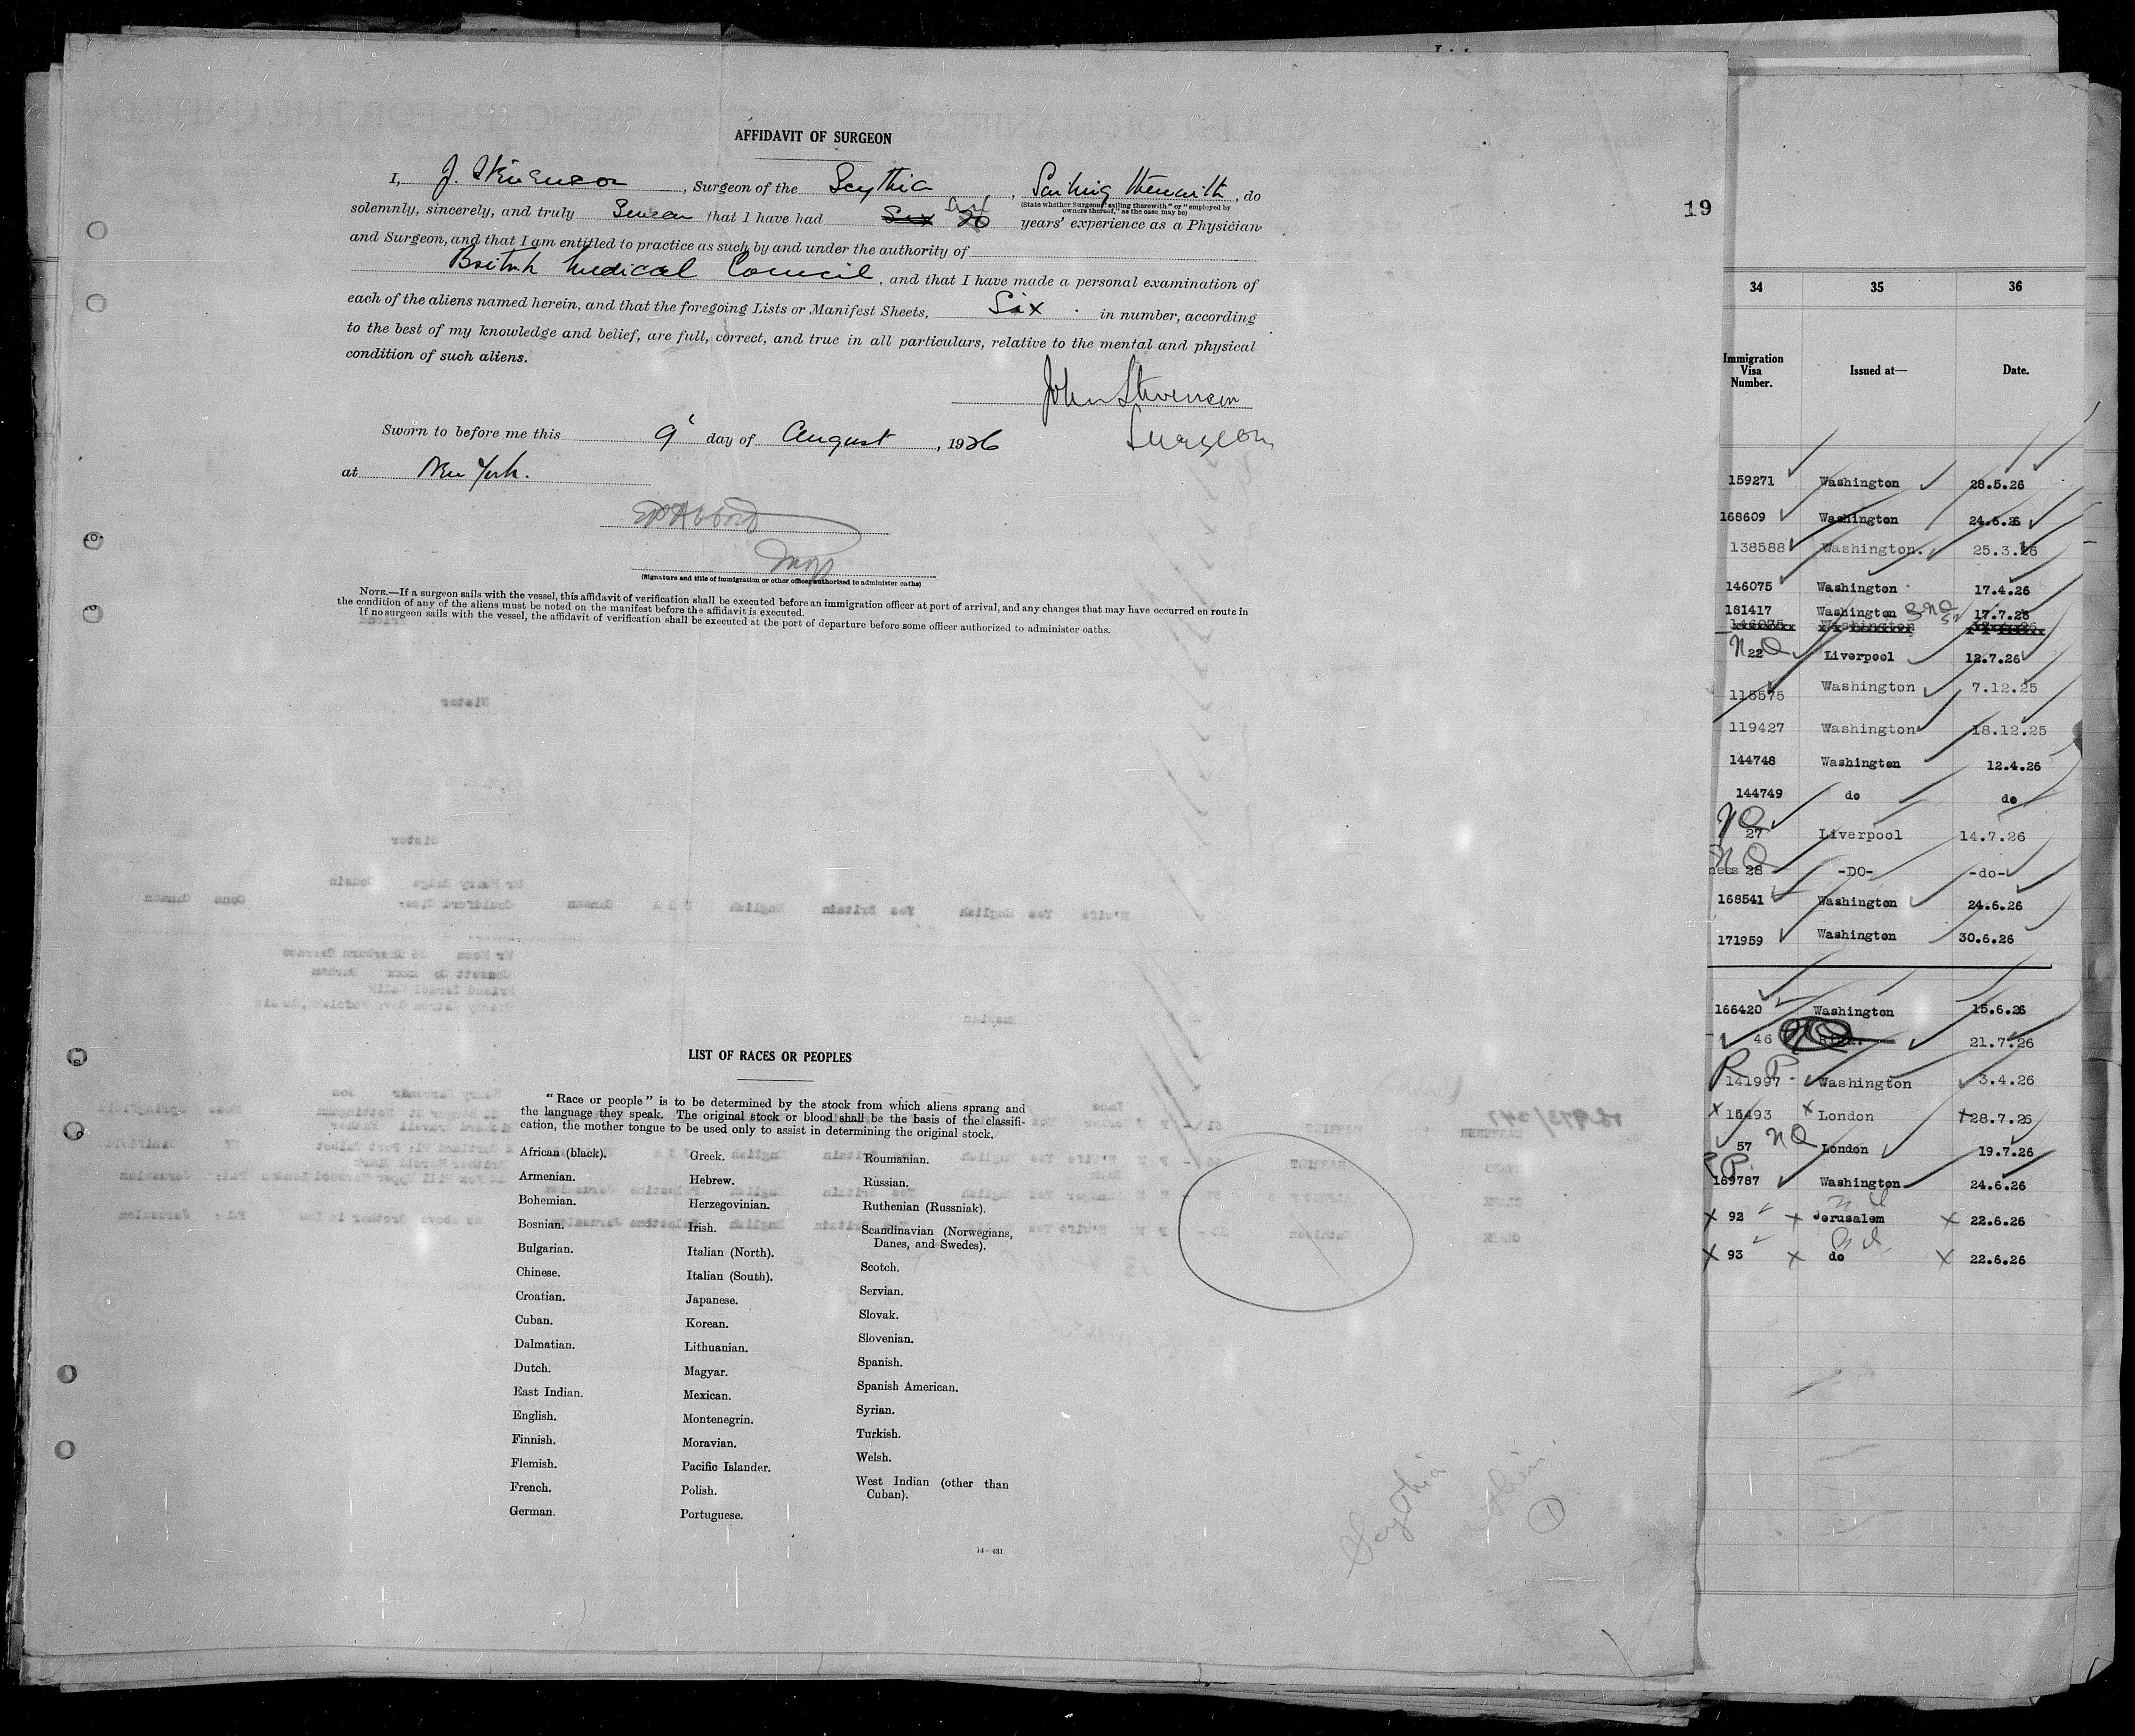 AFFIDAVIT OF SURGEON
I, J. Stevenson, Surgeon of the Scythia, Sailing therewith, do
(State whether Surgeon "sailing therewith" or "employed by
owners thereof," as the case may be)
solemnly, sincerely, and truly Swear that I have had Six 26
years' experience as a Physician
and Surgeon, and that I am entitled to practice as such by and under the authority of
British Medical Council, and that I have made a personal examination of
each of the aliens named herein, and that the foregoing Lists or Manifest Sheets, Six in number, according
to the best of my knowledge and belief, are full, correct, and true in all particulars, relative to the mental and physical
condition of such aliens.
John Stevenson
Surgeon
Sworn to before me this 9 day of August, 1926
at New York.
(Signature and title of immigration or other officer authorized to administer oaths)
NOTE.—If a surgeon sails with the vessel, this affidavit of verification shall be executed before an immigration officer at port of arrival, and any changes that may have occurred en route in
the condition of any of the aliens must be noted on the manifest before the affidavit is executed.
If no surgeon sails with the vessel, the affidavit of verification shall be executed at the port of departure before some officer authorized to administer oaths.
LIST OF RACES OR PEOPLES
"Race or people" is to be determined by the stock from which aliens sprang and
the language they speak. The original stock or blood shall be the basis of the classifi-
cation, the mother tongue to be used only to assist in determining the original stock.
African (black).
Armenian.
Bohemian.
Bosnian.
Bulgarian.
Chinese.
Croatian.
Cuban.
Dalmatian.
Dutch.
East Indian.
English.
Finnish.
Flemish.
French.
German.
Greek.
Hebrew.
Herzegovinian.
Irish.
Italian (North).
Italian (South).
Japanese.
Korean.
Lithuanian.
Magyar.
Mexican.
Montenegrin.
Moravian.
Pacific Islander.
Polish.
Portuguese.
Roumanian.
Russian.
Ruthenian (Russniak).
Scandinavian (Norwegians,
Danes, and Swedes).
Scotch.
Servian.
Slovak.
Slovenian.
Spanish.
Spanish American.
Syrian.
Turkish.
Welsh.
West Indian (other than
Cuban).
14—431
Scythia
1
19
34 35 36
Immigration
Visa
Number.
Issued at—
Date.
159271 Washington 28.5.26
168609 Washington 24.6.26
138588 Washington. 25.3.26
146075 Washington 17.4.26
181417 Washington 17.7.26
146075 Washington
NQ 22 Liverpool 12.7.26
115575 Washington 7.12.25
119427 Washington 18.12.25
144748 Washington 12.4.26
144749 do do
NQ 27 Liverpool 14.7.26
NQ 28 -DO- -do-
168541 Washington 24.6.26
171959 Washington 30.6.26
166420 Washington 15.6.26
46 21.7.26
RP 141997 Washington 3.4.26
15493 London 28.7.26
57 NQ London 19.7.26
RP 169787 Washington 24.6.26
92 Jerusalem 22.6.26
93 do 22.6.26